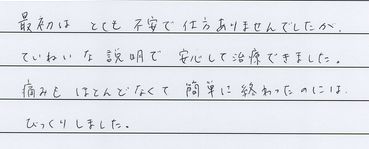 最初は とても 不安で 仕方ありませんでしたが、
ていねいな 説明で 安心して治療できました。
痛みも ほとんどなくて 簡単に 終わったのには、
びっくりしました。